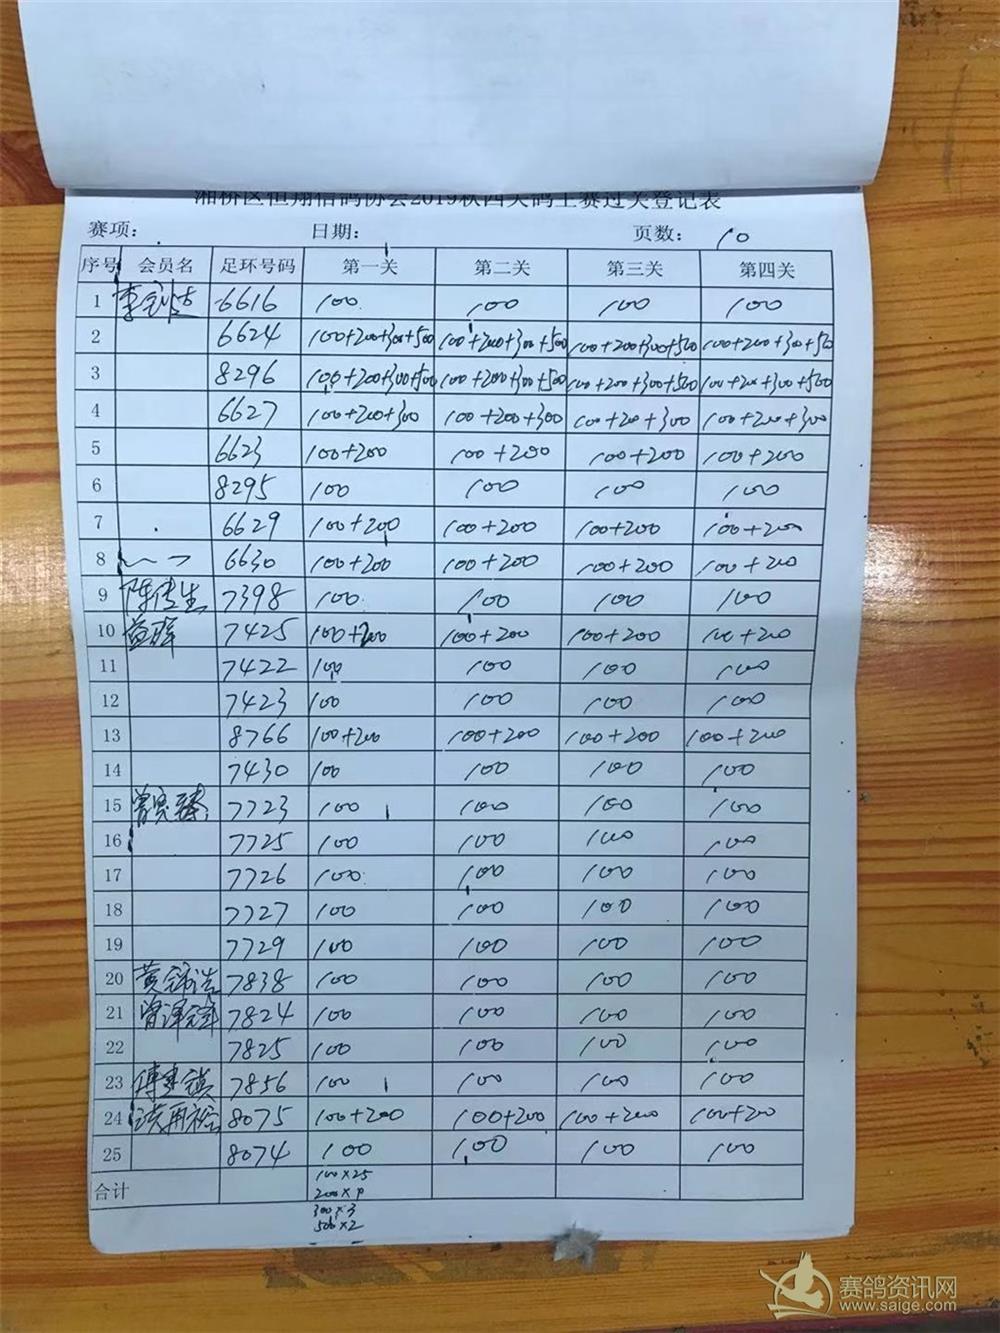 湘桥区恒翔信鸽协会2019秋四关码上赛过关登记表
赛项: 日期: 页数: 10
序号 会员名 足环号码 第一关 第二关 第三关 第四关
1 6616 100 100 100 100
2 6624 100+200+300+500 100+200+300+500 100+200+300+500 100+200+300+500
3 8296 100+200+300+500 100+200+300+500 100+200+300+500 100+200+300+500
4 6627 100+200+300 100+200+300 100+200+300 100+200+300
5 6623 100+200 100+200 100+200 100+200
6 8295 100 100 100 100
7 6629 100+200 100+200 100+200 100+200
8 6630 100+200 100+200 100+200 100+200
9 7398 100 100 100 100
10 7425 100+200 100+200 100+200 100+200
11 7422 100 100 100 100
12 7423 100 100 100 100
13 8766 100+200 100+200 100+200 100+200
14 7430 100 100 100 100
15 7723 100 100 100 100
16 7725 100 100 100 100
17 7726 100 100 100 100
18 7727 100 100 100 100
19 7729 100 100 100 100
20 7838 100 100 100 100
21 7824 100 100 100 100
22 7825 100 100 100 100
23 7856 100 100 100 100
24 8075 100+200 100+200 100+200 100+200
25 8074 100 100 100 100
合计 100×25
200×9
300×3
500×2
赛鸽资讯网
www.saige.com